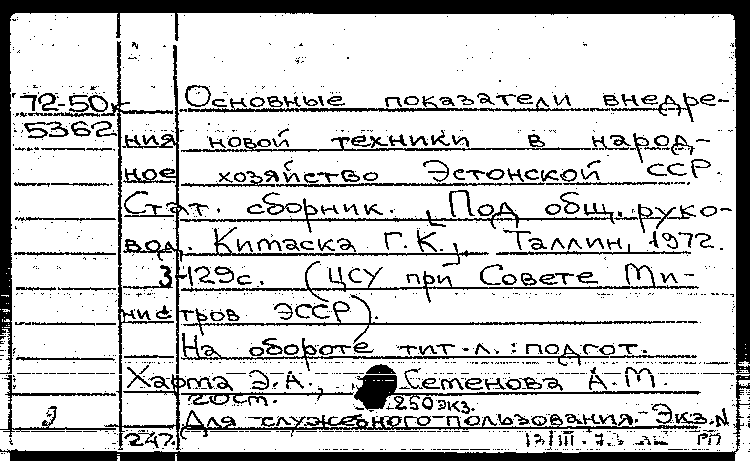 72-50к Основные показатели внедре-
5362 ния новой техники в народ-
ное хозяйство Эстонской ССР.
Стат. сборник. [Под общ. руко-
вод. Китаска Г.К.]. Таллин, 1972.
3-129с. (ЦСУ при Совете Ми-
нистров ЭССР).
На обороте тит.л.: подгот.
Харта Э.А., Семенова А.М.
20см. 250экз.
Для служебного пользования. Экз.N
247. 13/III